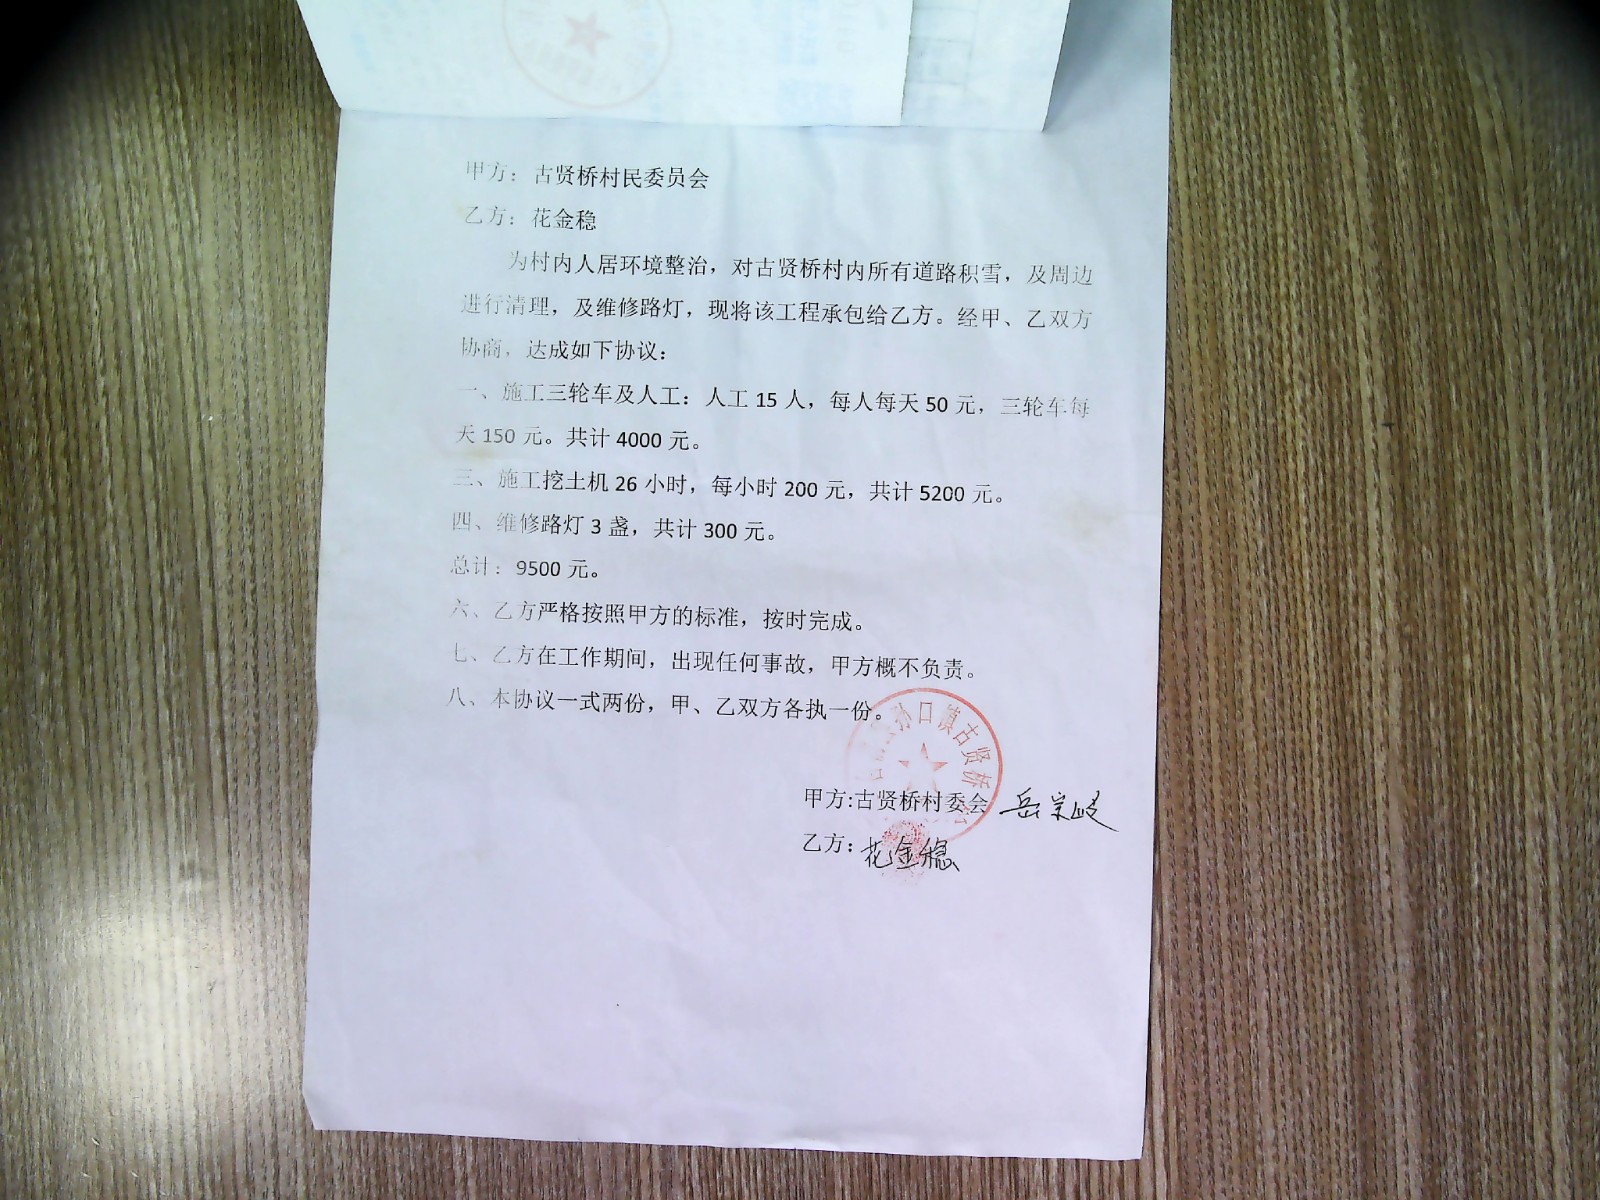 甲方：古贤桥村民委员会
乙方：花金稳
为村内人居环境整治，对古贤桥村内所有道路积雪，及周边
进行清理，及维修路灯，现将该工程承包给乙方。经甲、乙双方
协商，达成如下协议：
一、施工三轮车及人工：人工 15 人，每人每天 50 元，三轮车每
天 150 元。共计 4000 元。
三、施工挖土机 26 小时，每小时 200 元，共计 5200 元。
四、维修路灯 3 盏，共计 300 元。
总计：9500 元。
六、乙方严格按照甲方的标准，按时完成。
七、乙方在工作期间，出现任何事故，甲方概不负责。
八、本协议一式两份，甲、乙双方各执一份。
孙口镇古贤桥
甲方:古贤桥村委会 岳宗岐
乙方：花金稳